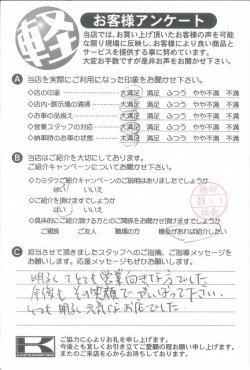 軽
お客様アンケート
当店では、お買い上げ頂いたお客様の声を可能
な限り現場に反映し、お客様により良い商品と
サービスを提供する事に努めています。
大変お手数ですが是非お声をお聞かせ下さい。
A 当店を実際にご利用になった印象をお聞かせ下さい。
◇店の印象 大満足 満足 ふつう やや不満 不満
◇店内・展示場の清掃 大満足 満足 ふつう やや不満 不満
◇お車の品揃え 大満足 満足 ふつう やや不満 不満
◇営業スタッフの対応 大満足 満足 ふつう やや不満 不満
◇納車時のお車の状態 大満足 満足 ふつう やや不満 不満
B 当店はご紹介を大切にしております。
ご紹介キャンペーンについてお聞かせ下さい。
◇カミタケご紹介キャンペーンのご説明はありましたでしょうか
はい いいえ
◇ご紹介を頂けますでしょうか
はい いいえ
◇具体的にご紹介頂ける方とのご関係をお聞かせ頂けますでしょうか
ご親族 ご友人 職場の方 機会があれば紹介したい
C 担当させて頂きましたスタッフへのご指摘、ご指導メッセージを
お願いします。応援メッセージもぜひお願いします。
明るくてとても営業向きな方でした
今後も その笑顔で がんばってください。
とても明るく元気なお店でした。
K
ご協力に心よりお礼を申し上げます。
今後とも宜しくお引き立てご愛顧の程お願い申し上げます。
またのご来店を心からお待ちしております。